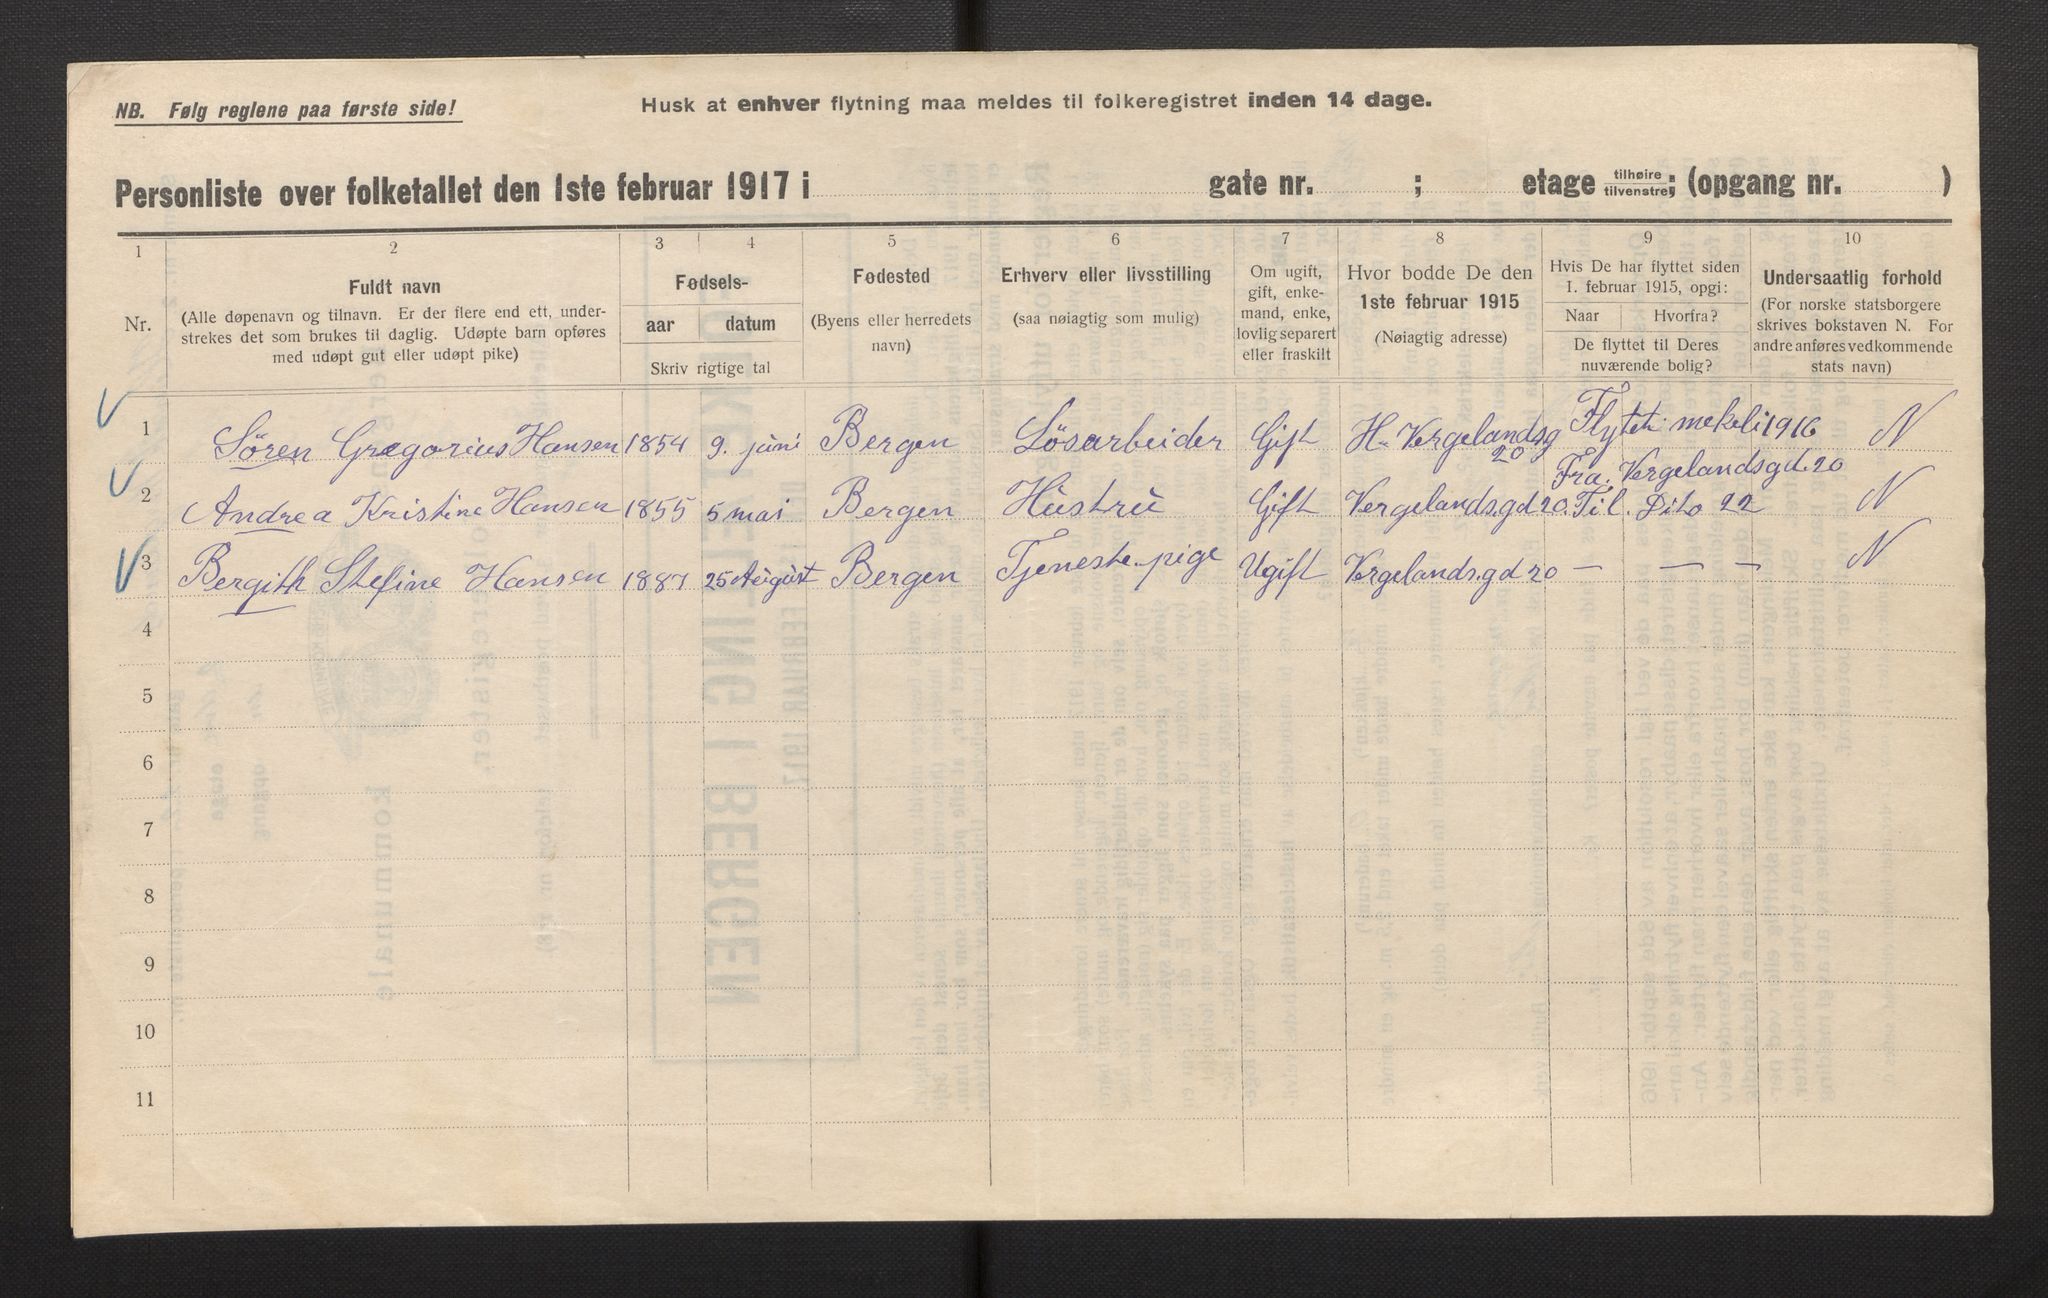 NB. Følg reglene paa første side!
Husk at enhver flytning maa meldes til folkeregistret inden 14 dage.
Personliste over folketallet den 1ste februar 1917 i gate nr. ; etage tilhøire tilvenstre; (opgang nr. )
1 2 3 4 5 6 7 8 9 10
Nr.
Fuldt navn
(Alle døpenavn og tilnavn. Er der flere end ett, under-
strekes det som brukes til daglig. Udøpte barn opføres
med udøpt gut eller udøpt pike)
Fødsels-
aar datum
Skriv rigtige tal
Fødested
(Byens eller herredets
navn)
Erhverv eller livsstilling
(saa nøiagtig som mulig)
Om ugift,
gift, enke-
mand, enke,
lovlig separert
eller fraskilt
Hvor bodde De den
1ste februar 1915
(Nøiagtig adresse)
Hvis De har flyttet siden
1. februar 1915, opgi:
Naar Hvorfra?
De flyttet til Deres
nuværende bolig?
Undersaatlig forhold
(For norske statsborgere
skrives bokstaven N. For
andre anføres vedkommende
stats navn)
1 Søren Gregorius Hansen 1854 9. juni Bergen Løsarbeider Gift H. Vergelandsg 20 Flytet mekeli 1916 N
Fra. Vergelandsgd. 20
2 Andrea Kristine Hansen 1855 5 mai Bergen Hustru Gift Vergelands.gd 20. Til. Dito 22 N
3 Bergith Stefine Hansen 1887 25 August Bergen Tjeneste-pige Ugift Vergelands.gd 20 — — — N
4
5
6
7
8
9
10
11